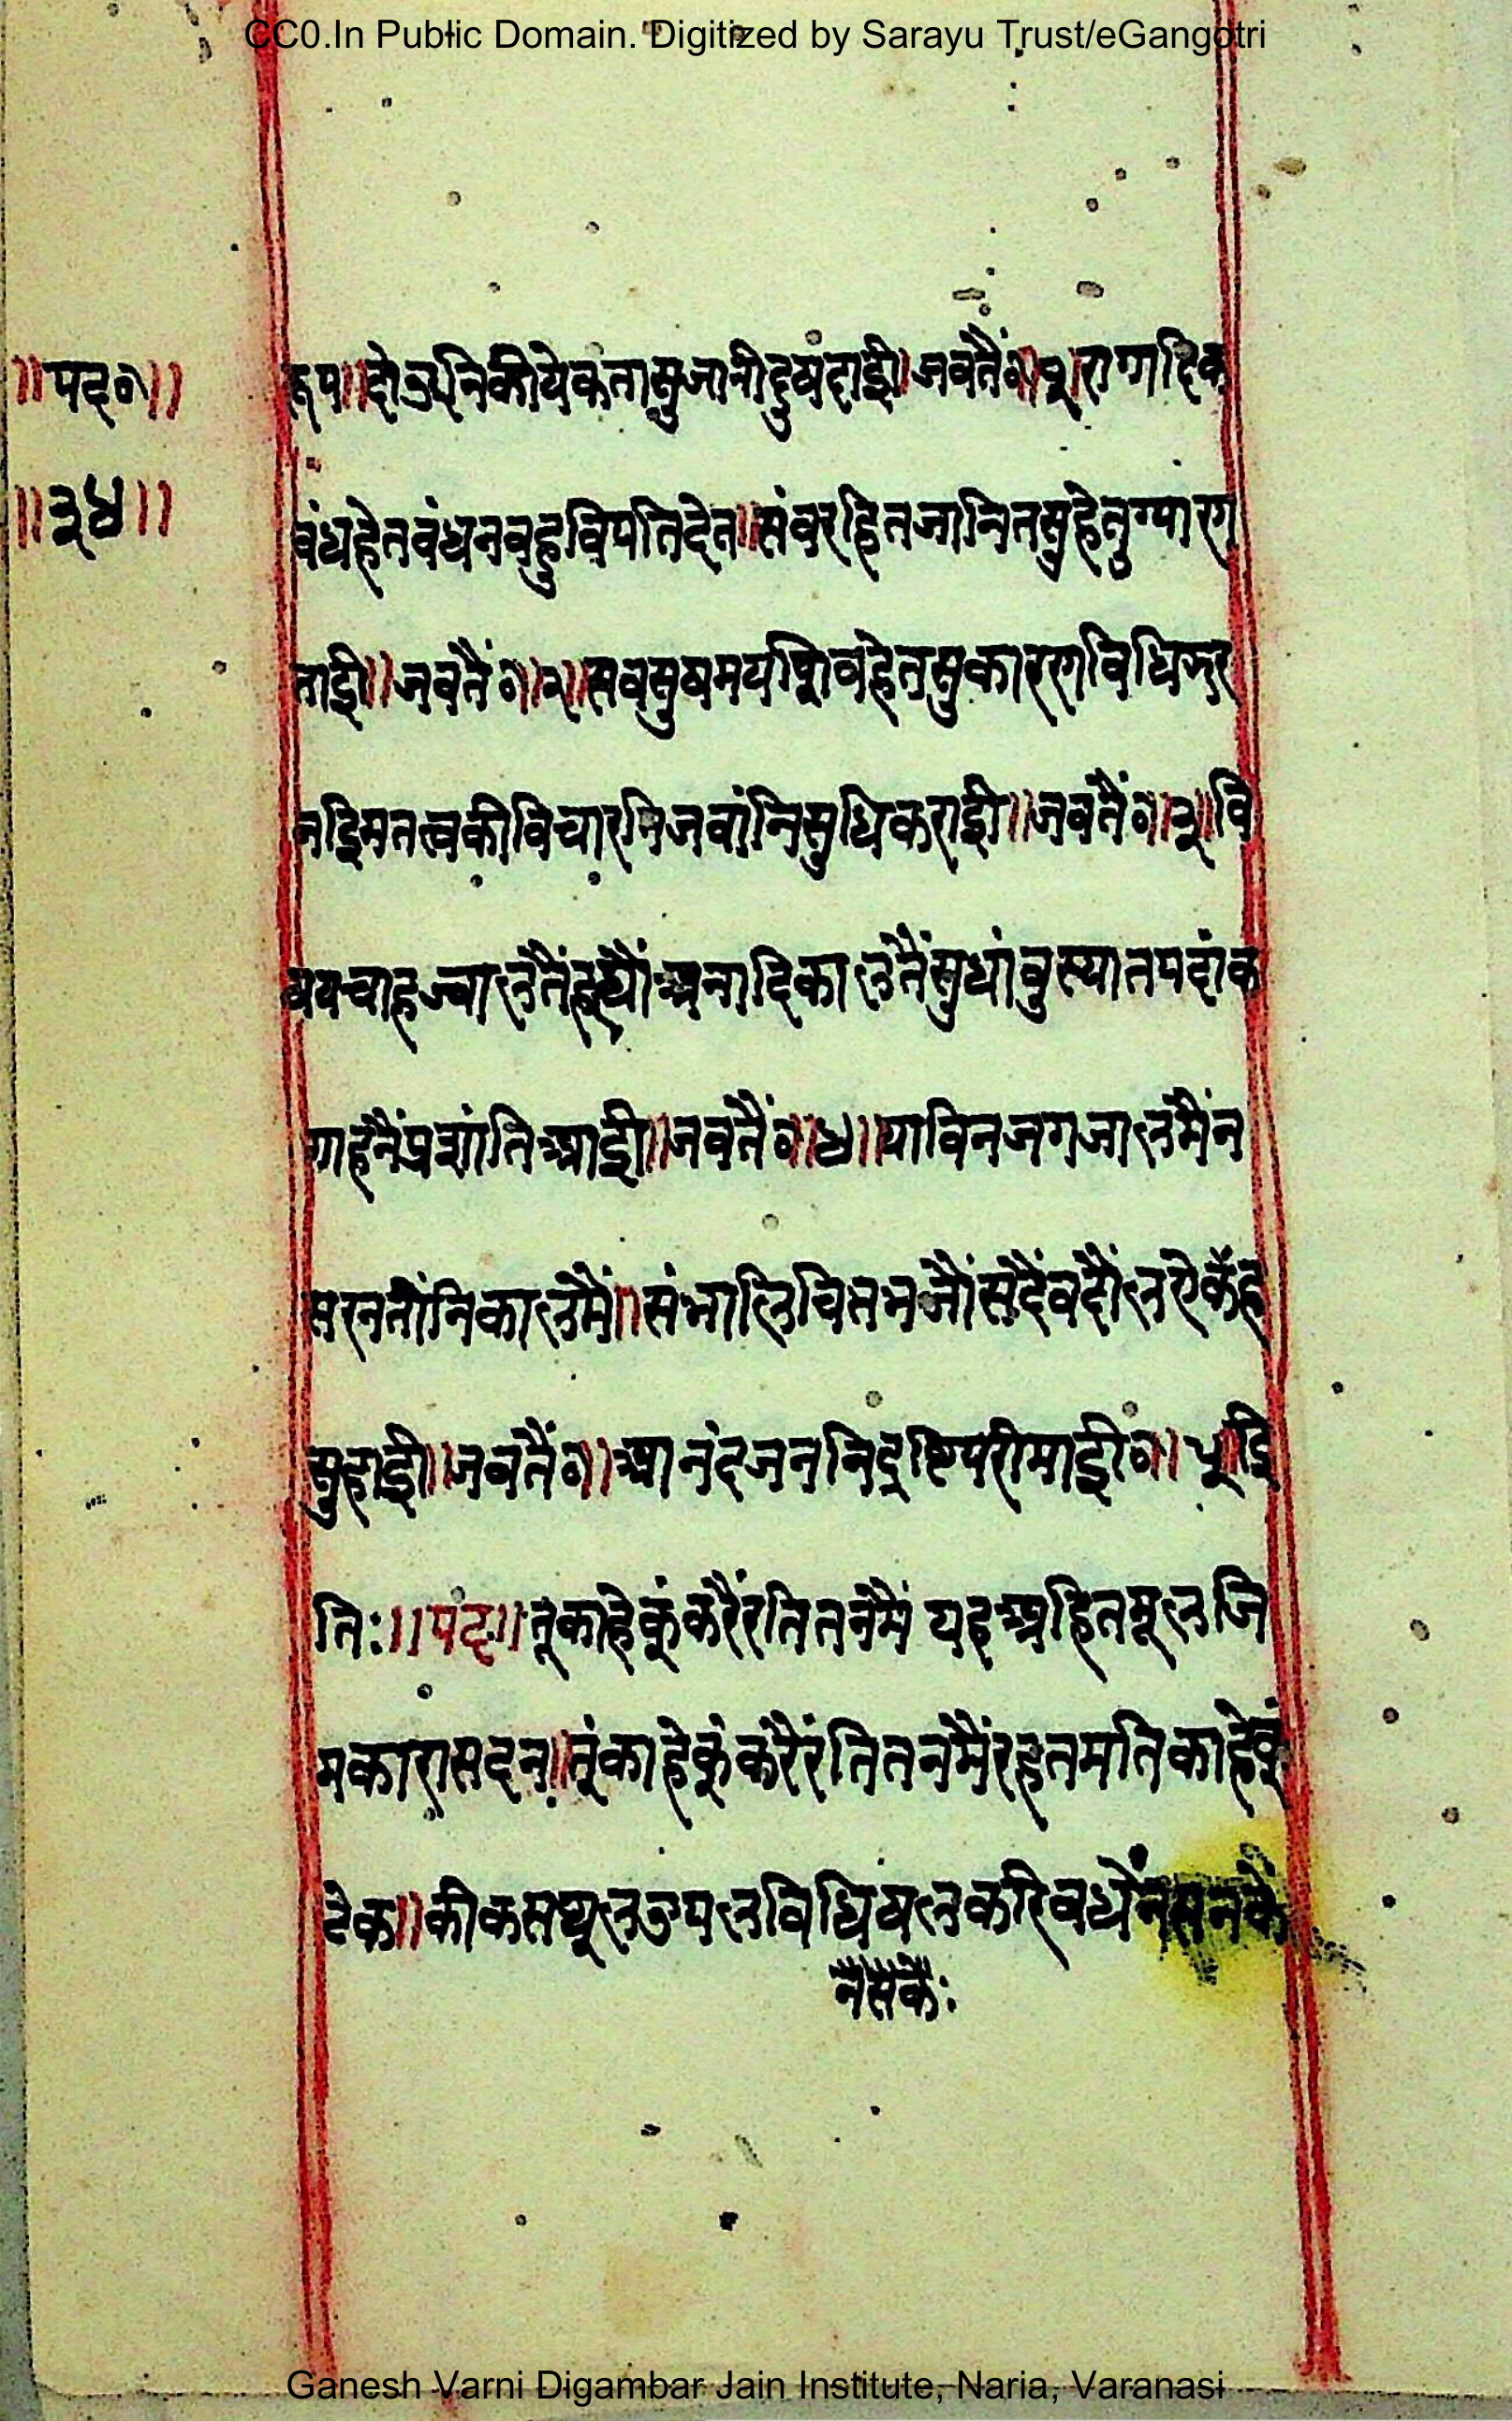 CC0.In Public Domain. Digitized by Sarayu Trust/eGangotri
॥पद०॥
॥३४॥
रूप॥दोउनिकीयेकतासुजानीदुषदाई।जबतैं०।१।रागादिक
बंधहेतबंधनबहुविपतिदेत॥संवरहितजानितसुहेतुग्यारग
ताई॥जबतैं०।२।सबसुषमयशिवहेतसुकारणविधिझर
नइिमतत्वकीविचारनिजवांनिसुधिकराई॥जबतैं०।३।वि
षयचाहज्वालतैंदह्यौंअनादिकालतैंसुधांबुस्यातपदांक
गाहनैंप्रशांतिआई॥जबतैं०।४॥याविनजगजालमैंन
सरनतींनिकालमैं॥संभालिचितभजौंसदैंवदौलऐकैंह
सुहाई॥जबतैं०।आनंदजननिदृष्टिपरीमाई०।५।ई
ति:॥पद॥तूकाहेकूंकरैंरतितनमैं यहअहितमूलजि
मकारासदन॥तूंकाहेकूंकरैंरतितनमैंरहतमतिकाहेकूं
टेक॥कीकसथूलउपलविधिषलकरिवधैंनसनकै
नैसकै:
Ganesh Varni Digambar Jain Institute, Naria, Varanasi